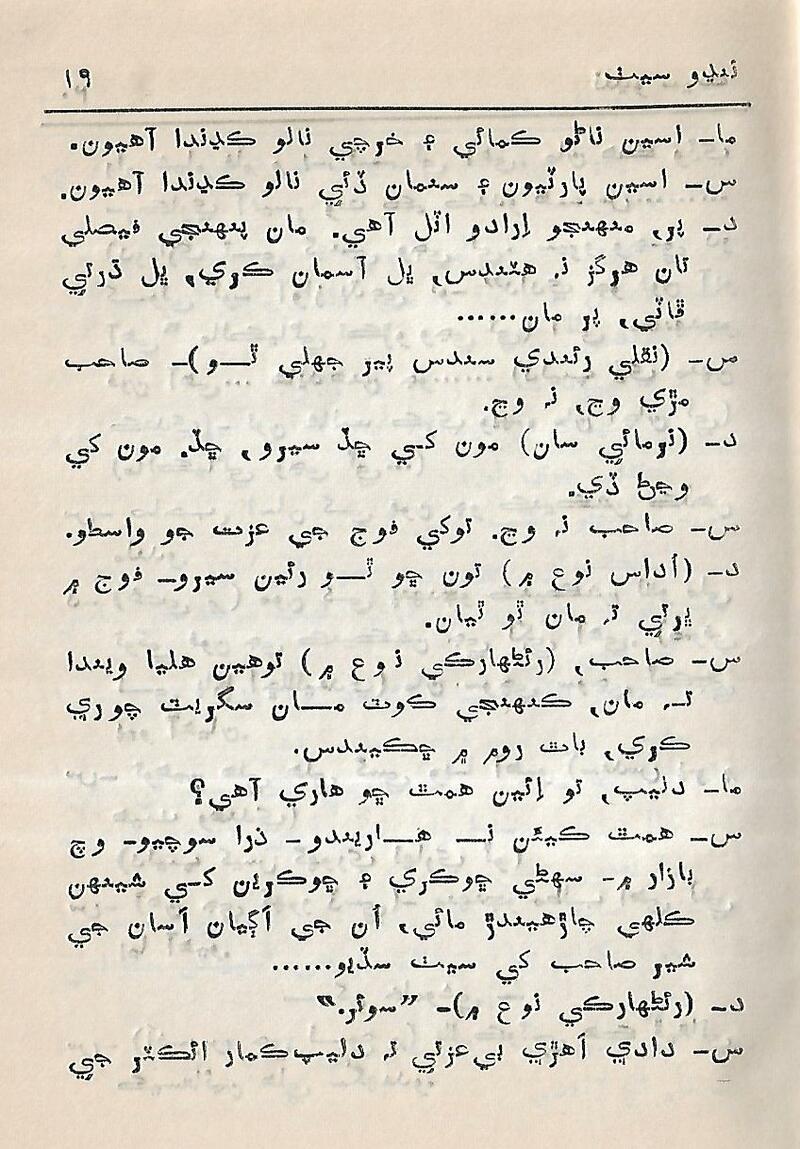 ننڍو سيٺ ١٩
ما- اسين ناڻو ڪمائي ۽ خرچي نالو ڪڍندا آهيون.
س- اسين پارٽيون ۽ سنمان ڏئي نالو ڪڍندا آهيون.
د- پر، منهنجو اِرادو اٽل آهي. مان پنهنجي فيصلي
تان هرگز نہ هٽندس، ڀل آسمان ڪري، ڀل ڌرتي
ڦاٽي، پر مان......
س- (نقلي رئندي سندس پير جهلي ٿــو)- صاحب
مڙي وڃ، نہ وڃ.
د- (نرمائي سان) مون کــي ڇڏ سيرو، ڇڏ. مون کي
وڃڻ ڏي.
س- صاحب نہ وڃ. توکي فوج جي عزت جو واسطو.
د- (اُداس نوع ۾) تون ڇو ٿــو رئين سيرو- فوج ۾
ڀرتي تہ مان ٿو ٿيان.
س- صاحب، (رئڻهارڪي نوع ۾) توهين هليا ويندا
تــہ مان، ڪنهنجي ڪوٽ مــان سگريٽ چوري
ڪري، باٿ روم ۾ ڇڪيندس.
ما- دليپ، تو اِئين همٿ ڇو هاري آهي؟
س- همٿ ڪيئن نــہ هــاريندو- ذرا سوچيو- وچ
بازار ۾- سهڻي ڇوڪري ۽ ڇوڪرين کــي شينهن
ڪلهي چاڙهيندڙ مائي، اُن جي اَڳيان اَسان جي
شير صاحب کي سيٺ سڏيو......
د- (رئڻهارڪي نوع ۾)- ”سوئر.“
س- دادي اَهڙي بي‌عزتي تہ دليپ‌ڪمار ائڪٽر جي